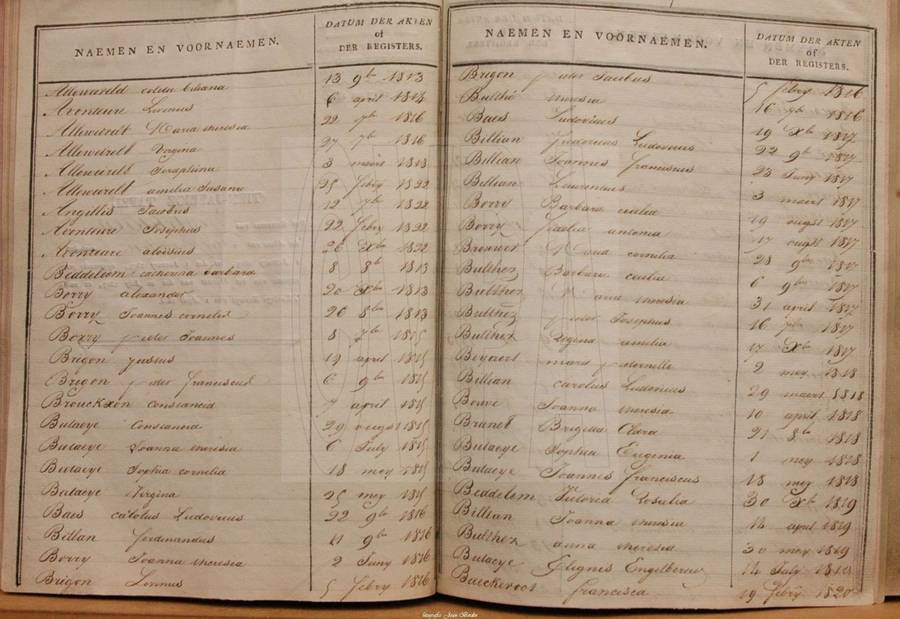 NAEMEN EN VOORNAEMEN.
DATUM DER AKTEN
of
DER REGISTERS.
Alleweireld
13 9br 1813
Aventure Livinus
6 april 1813
Allewierdt Maria theresia
22 7br 1816
Allewerelt Virgina
27 7br 1816
Allewerelt Seraphina
3 maers 1813
Allewerelt amelia Susann
25 febry 1822
Angillis Jacobus
12 7br 1822
Aventure Josephus
22 febry 1822
Aventure aloisius
26 Xbr 1822
Beddeleem catherina barbara
8 8br 1813
Borry alexander
20 Xbr 1813
Borry Joannes cornelis
20 8br 1813
Borry pieter Joannes
8 7br 1815
Brigon Justus
19 april 1815
Brigon pieter franciscus
6 9br 1815
Brouckxon constancia
7 april 1815
Butaeye Constancia
29 ougst 1815
Butaeye Joanna theresia
6 July 1815
Butaeye Sophia cornelia
18 mey 1815
Butaeye Virgina
25 mey 1815
Baes carolus Ludovicus
22 9br 1816
Billan ferdinandus
11 9br 1816
Borry Joanna theresia
2 Juny 1816
Brigon Linnus
5 febry 1816
NAEMEN EN VOORNAEMEN.
DATUM DER AKTEN
of
DER REGISTERS.
Brigon pieter Jacobus
5 febry 1816
Bulthé theresia
16 7br 1816
Baes Ludovicus
19 Xbr 1817
Billian fredericus Ludovicus
22 9br 1817
Billian Joannes franciscus
23 Juny 1817
Billian Laurentius
3 maert 1817
Borry Barbara cecilia
19 ougst 1817
Borry antonia
17 ougst 1817
Maria cornelia
28 9br 1817
Bulthez Barbara cecilia
6 9br 1817
Bulthez Maria theresia
31 april 1817
Bulthez pieter Josephus
16 7br 1817
Bulthez Regina amelia
17 Xbr 1817
Beyaert marie petornelle
2 mey 1818
Billian carolus Ludovicus
29 maert 1818
Bouve Joanna theresia
10 april 1818
Brunel Brigitta Clara
21 8br 1818
Butaeye Sophia Eugenia
1 mey 1818
Butaeye Joannes franciscus
18 mey 1818
Beddelem Rosalia
30 Xbr 1819
Billian Joanna theresia
14 april 1819
Bulthez anna theresia
30 mey 1819
Butaeye Engelbertus
14 July 1819
Baeckeroot francisca
19 febry 1820